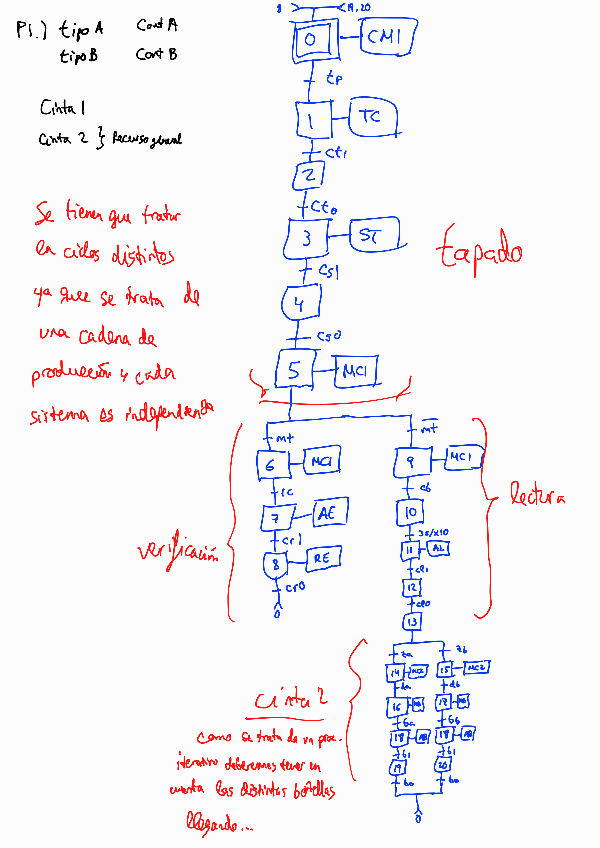 P1.) tipo A Cont A
tipo B Cont B
Cinta 1
Cinta 2 } Recurso general
Se tienen que tratar
en ciclos distintos
ya que se trata de
una cadena de
producción y cada
sistema es independiente
8 19,20
0 CM1
tp
1 TC
ct1
2
ct0
3 ST
cs1
4
cs0
5 MC1
tapado
mt
6 MC1
sc
7 AE
cr1
8 RE
cr0
0
verificación
mt
9 MC1
cb
10
3s/X10
11 AL
cl1
12
cl0
13
lectura
za zb
14 MC2 15 MC2
da db
16 17
ba bb
18 AB 18 AB
b1 b1
19 20
b0 b0
0
cinta 2
como se trata de un proc.
iterativo deberemos tener en
cuenta las distintas botellas
llegando...